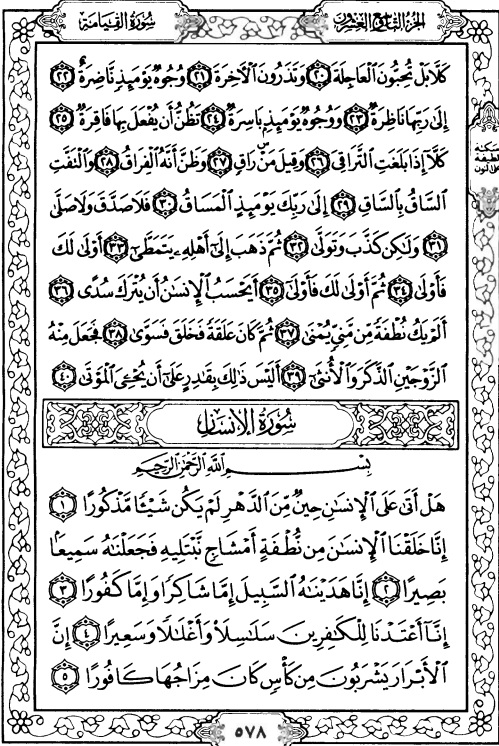 الجزء التاسع والعشرون
سورة القيامة
كَلَّا بَلْ تُحِبُّونَ ٱلْعَاجِلَةَ ٢٠ وَتَذَرُونَ ٱلْآخِرَةَ ٢١ وُجُوهٌ يَوْمَئِذٍ نَّاضِرَةٌ ٢٢
إِلَىٰ رَبِّهَا نَاظِرَةٌ ٢٣ وَوُجُوهٌ يَوْمَئِذٍۭ بَاسِرَةٌ ٢٤ تَظُنُّ أَن يُفْعَلَ بِهَا فَاقِرَةٌ ٢٥
كَلَّآ إِذَا بَلَغَتِ ٱلتَّرَاقِىَ ٢٦ وَقِيلَ مَنْ ۜ رَاقٍ ٢٧ وَظَنَّ أَنَّهُ ٱلْفِرَاقُ ٢٨ وَٱلْتَفَّتِ
ٱلسَّاقُ بِٱلسَّاقِ ٢٩ إِلَىٰ رَبِّكَ يَوْمَئِذٍ ٱلْمَسَاقُ ٣٠ فَلَا صَدَّقَ وَلَا صَلَّىٰ
٣١ وَلَٰكِن كَذَّبَ وَتَوَلَّىٰ ٣٢ ثُمَّ ذَهَبَ إِلَىٰٓ أَهْلِهِۦ يَتَمَطَّىٰٓ ٣٣ أَوْلَىٰ لَكَ
فَأَوْلَىٰ ٣٤ ثُمَّ أَوْلَىٰ لَكَ فَأَوْلَىٰٓ ٣٥ أَيَحْسَبُ ٱلْإِنسَٰنُ أَن يُتْرَكَ سُدًى ٣٦
أَلَمْ يَكُ نُطْفَةً مِّن مَّنِىٍّ يُمْنَىٰ ٣٧ ثُمَّ كَانَ عَلَقَةً فَخَلَقَ فَسَوَّىٰ ٣٨ فَجَعَلَ مِنْهُ
ٱلزَّوْجَيْنِ ٱلذَّكَرَ وَٱلْأُنثَىٰٓ ٣٩ أَلَيْسَ ذَٰلِكَ بِقَٰدِرٍ عَلَىٰٓ أَن يُحْۦِىَ ٱلْمَوْتَىٰ ٤٠
سورة الإنسان
بِسْمِ ٱللَّهِ ٱلرَّحْمَٰنِ ٱلرَّحِيمِ
هَلْ أَتَىٰ عَلَى ٱلْإِنسَٰنِ حِينٌ مِّنَ ٱلدَّهْرِ لَمْ يَكُن شَيْـًٔا مَّذْكُورًا ١
إِنَّا خَلَقْنَا ٱلْإِنسَٰنَ مِن نُّطْفَةٍ أَمْشَاجٍ نَّبْتَلِيهِ فَجَعَلْنَٰهُ سَمِيعًۢا
بَصِيرًا ٢ إِنَّا هَدَيْنَٰهُ ٱلسَّبِيلَ إِمَّا شَاكِرًا وَإِمَّا كَفُورًا ٣
إِنَّآ أَعْتَدْنَا لِلْكَٰفِرِينَ سَلَٰسِلَا۟ وَأَغْلَٰلًا وَسَعِيرًا ٤ إِنَّ
ٱلْأَبْرَارَ يَشْرَبُونَ مِن كَأْسٍ كَانَ مِزَاجُهَا كَافُورًا ٥
٥٧٨